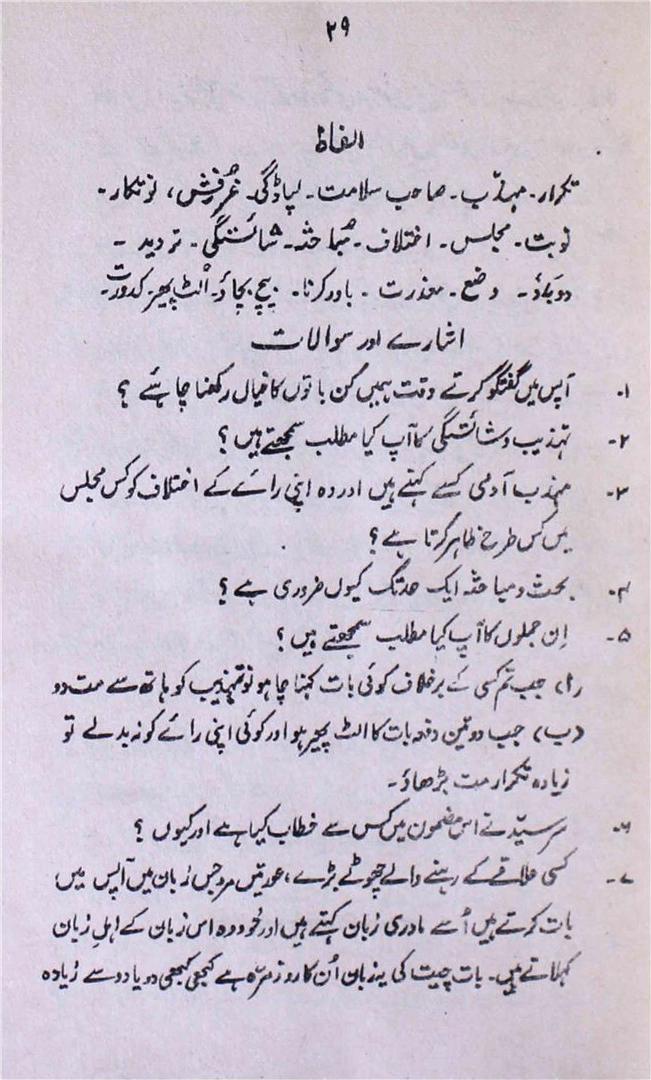 ۲۹
الفاظ
تکرار۔ مہذّب۔ صاحب سلامت۔ لپاڈگی۔ غُرفِش، توتکار۔
نوبت۔ مجلس۔ اختلاف۔ مُباحثہ۔ شائستگی۔ تردید۔
دوبَدُو۔ وضع۔ معذرت۔ باور کرنا۔ بیچ بچاؤ۔ اُلٹ پھیر۔ کدورت۔
اشارے اور سوالات
۱۔ آپس میں گفتگو کرتے وقت ہمیں کن باتوں کا خیال رکھنا چاہئے ؟
۲۔ تہذیب و شائستگی کا آپ کیا مطلب سمجھتے ہیں ؟
۳۔ مہذب آدمی کسے کہتے ہیں اور وہ اپنی رائے کے اختلاف کو کس مجلس
میں کس طرح ظاہر کرتا ہے ؟
۴۔ بحث و مباحثہ ایک حد تک کیوں ضروری ہے ؟
۵۔ اِن جملوں کا آپ کیا مطلب سمجھتے ہیں ؟
(ا) جب تم کسی کے برخلاف کوئی بات کہنا چاہو تو تہذیب کو ہاتھ سے مت دو
(ب) جب دو تین دفعہ بات کا الٹ پھیر ہو اور کوئی اپنی رائے کو نہ بدلے تو
زیادہ تکرار مت بڑھاؤ۔
۶۔ سرسیّد نے اس مضمون میں کس سے خطاب کیا ہے اور کیوں ؟
۷۔ کسی علاقے کے رہنے والے چھوٹے بڑے، عورتیں مرد جس زبان میں آپس میں
بات کرتے ہیں اُسے مادری زبان کہتے ہیں اور خود وہ اس زبان کے اہلِ زبان
کہلاتے ہیں۔ بات چیت کی یہ زبان اُن کا روزمرّہ ہے کبھی کبھی دو یا دو سے زیادہ